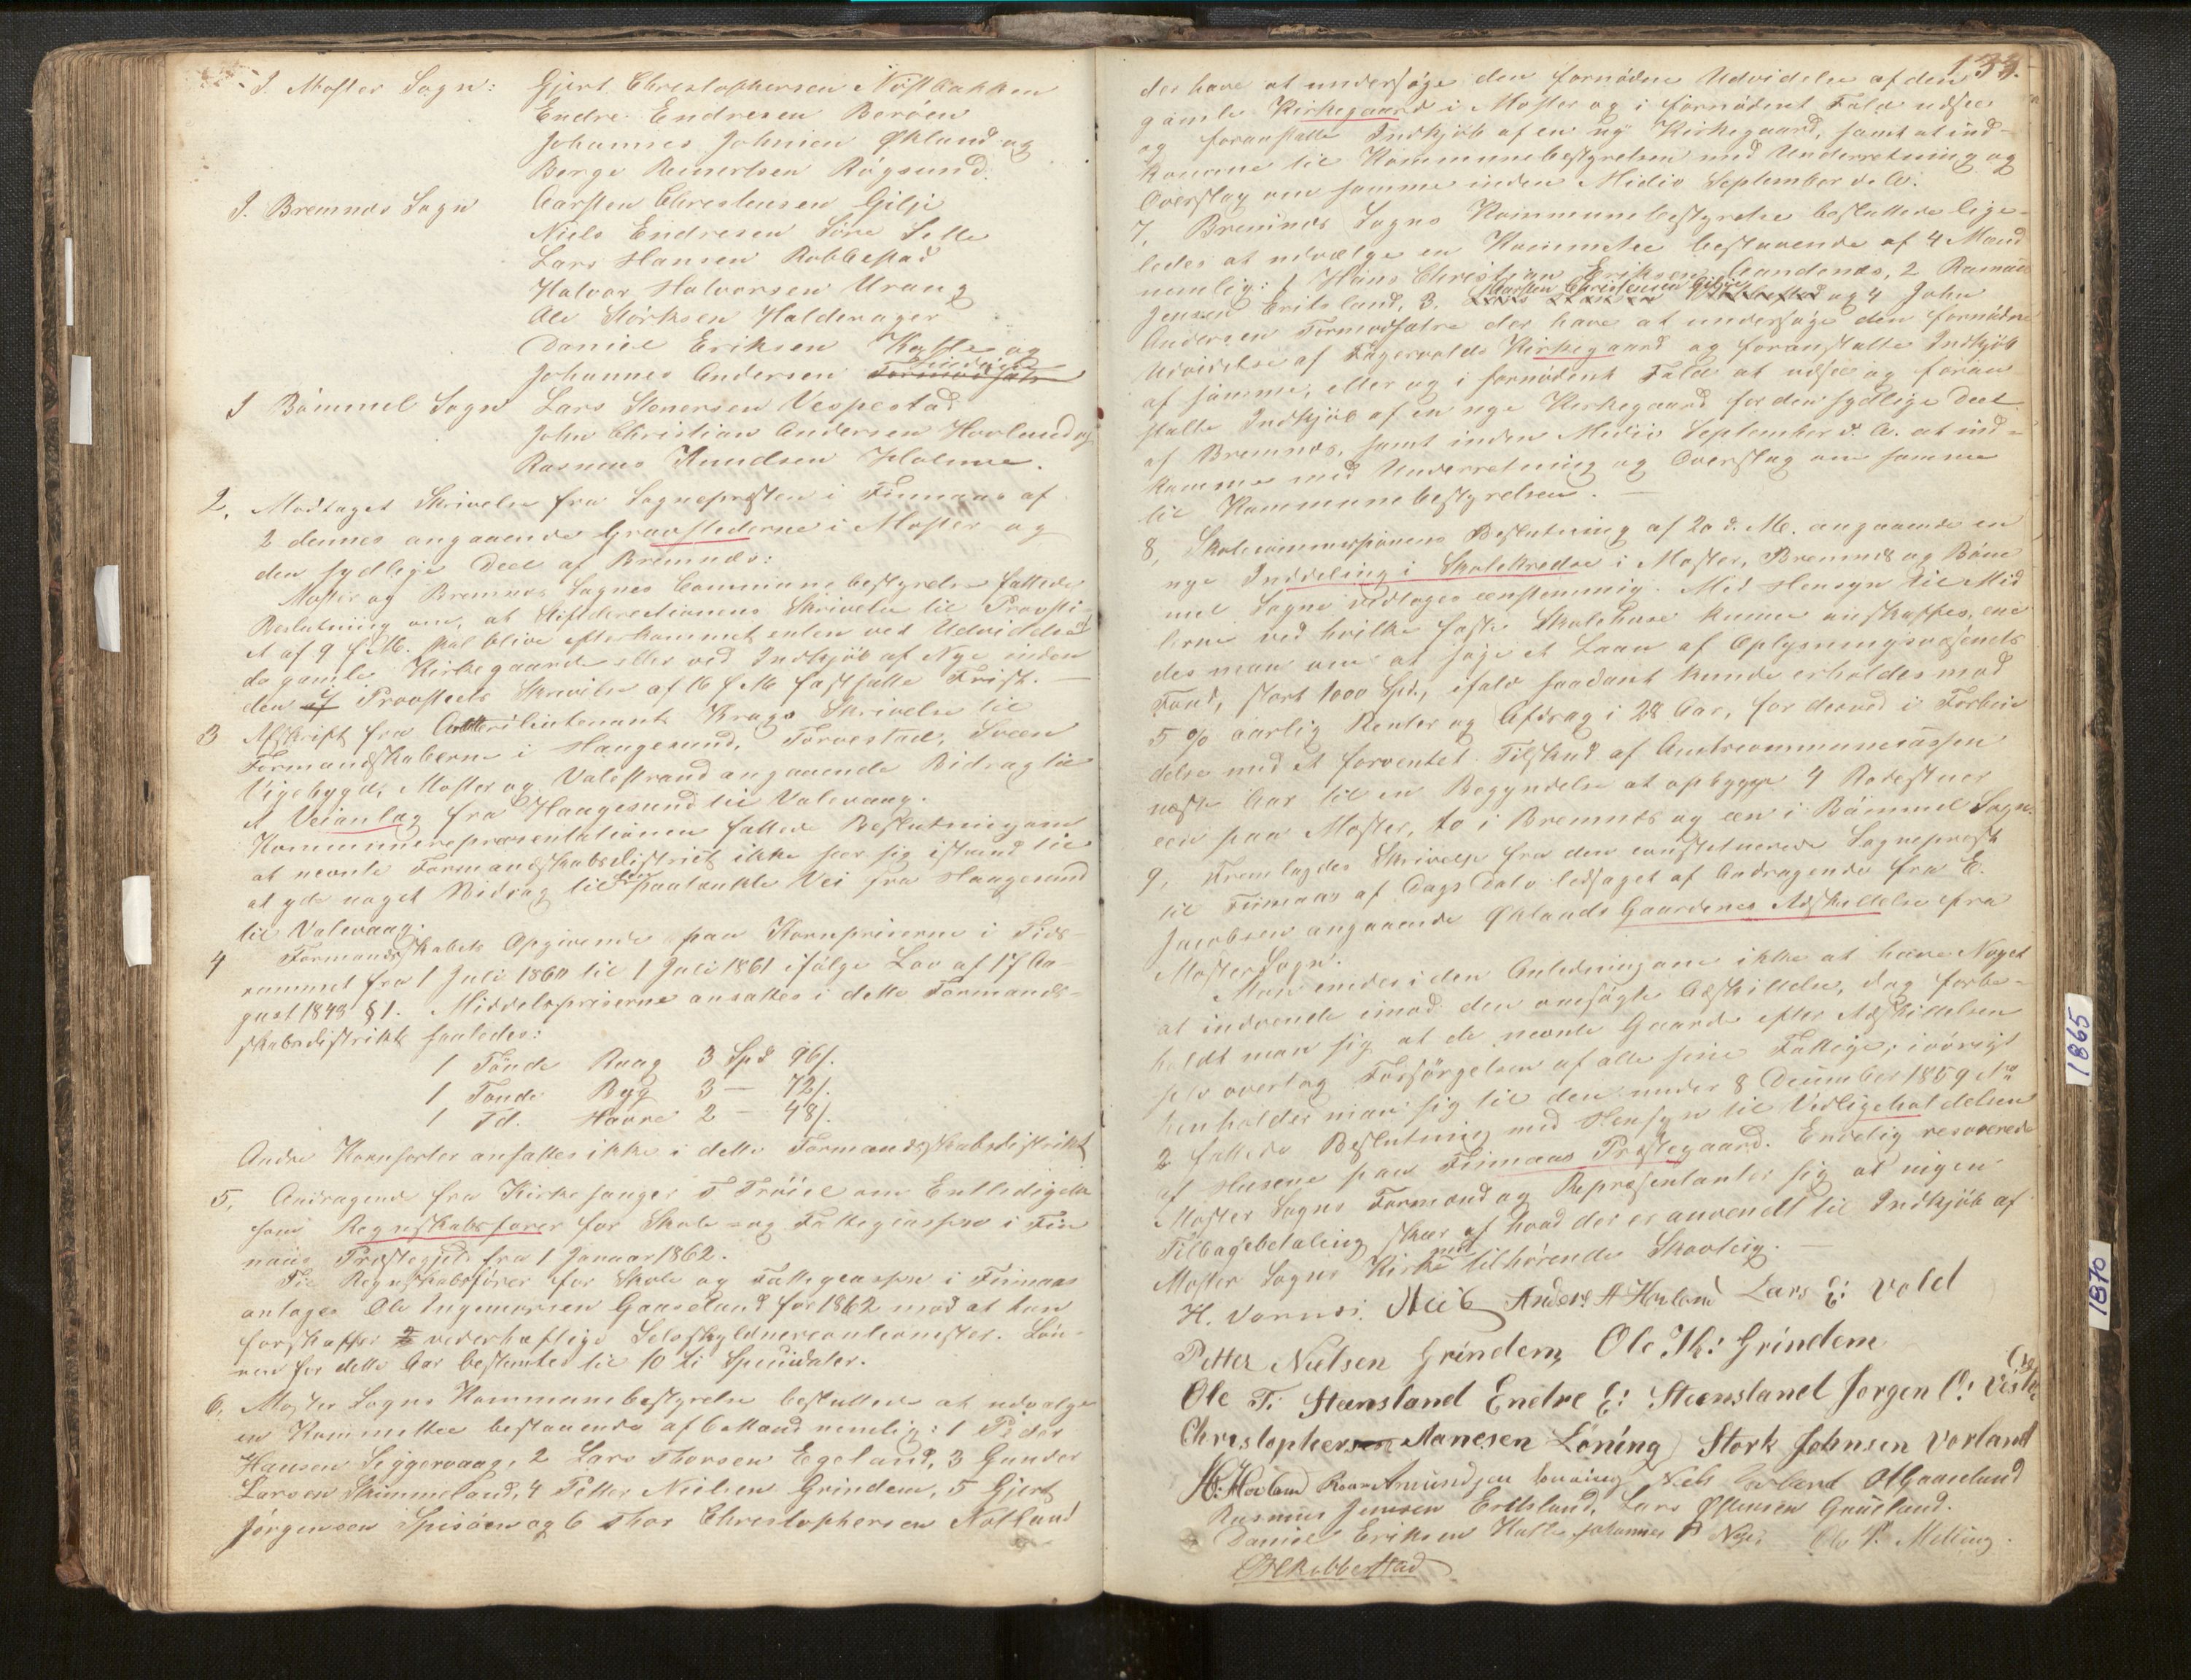 I. Moster Sogn: Gjert Christophersen Nøstbakken
Endre Endresen Berøen
Johannes Johnsen Økland og
Berge Reinertsen Røgsund.
I. Bremnæs Sogn Carsten Christensen Gilje
Niels Endresen Söre Selle
Lars Hansen Robbestad
Halvor Halvorsen Urang
Ole Størksen Halderager
Daniel Eriksen Hatle og
Johannes Andersen Tormodsæter
I Bömmel Sogn Lars Stenersen Vespestad
John Christian Andersen Hovland og
Rasmus Knudsen Holme.
2, Modtaget Skrivelse fra Sognepresten i Finnaas af
2 dennes angaaende Gravstederne i Moster og
den sydlige Deel af Bremnæs:
Moster og Bremnæs Sognes Communebestyrelse fattede
Beslutning om, at Stiftdirectionens Skrivelse til Provsti-
et af 9 f. M. skal blive efterkommet enten ved Udvidelse af
de gamle Kirkegaarde eller ved Indkjöb af Nye inden
den i Provstiets Skrivelse af 16 f M fastsatte Frist. —
3 Afskrift fra Artillerilieutenant Krags Skrivelse til
Formandskaberne i Haugesund, Torvestad, Sveen
Vigebygd, Moster og Valestrand angaaende Bidrag til
et Veianlæg fra Haugesund til Valevaag.
Kommunerepræsentationen fattede Beslutning om
at nævnte Formandskabsdistrict ikke seer sig istand til
at yde noget Bidrag til den paatænkte Vei fra Haugesund
til Valevaag.
4 Formandskabets Opgivende paa Kornpriserne i Tids-
rummet fra 1 Juli 1860 til 1 Juli 1861 ifølge Lov af 17 Au-
gust 1848 § 1. Middelspriserne ansattes i dette Formands-
skabsdistrikt saaledes:
1 Tönde Rug 3 Spd 96 s.
1 Tönde Byg 3 — 72 s.
1 Td. Havre 2 — 48 s.
Andre Kornsorter ansattes ikke i dette Formandsskabsdistrikt
5, Andragende fra Kirkesanger T Tröiel om Entledigelse
som Regnskabsfører for Skole- og Fattigcassen i Fin-
naas Præstegjeld fra 1 Januar 1862.
Til Regnskabsfører for Skole og Fattigcassen i Finnaas
antages Ole Ingemorsen Gaaseland for 1862 mod at han
forskaffer 2 vederhæftige Selvskyldnercautionister. Løn-
nen for dette Aar bestemtes til 10 ti Speciedaler.
6, Moster Sogns Kommunebestyrelse besluttede at udvælge
en Kommittee bestaaende af 6 Mænd nemlig: 1 Peder
Hansen Siggervaag, 2 Lars Thorsen Egeland, 3 Gunder
Larsen Skimmeland, 4 Petter Nielsen Grindem, 5 Gjert
Jørgensen Spisöen og 6 Thor Christophersen Notland
133.
der have at undersøge den fornødne Udvidelse af den
gamle Kirkegaard i Moster og i fornødent Fald udsee
og foranstalte Indkjöb af en ny Kirkegaard, samt at ind-
komme til Kommunebestyrelsen med Underretning og
Overslag om samme inden Midio September d. A.
7, Bremnæs Sogns Kommunebestyrelse besluttede lige-
ledes at udvælge en Kommitee bestaaende af 4 Mænd
nemlig: 1 Hans Christian Eriksen Aandenæs, 2 Rasmus
Jensen Eritsland, 3. Carsten Christensen Gilje og 4 John
Andersen Tormodsætre der have at undersøge den fornødne
Udvidelse af Fagervolds Kirkegaard og foranstalte Indkjöb
af samme, eller og i fornødent Fald at udsee og foran-
stalte Indkjöb af en nye Kirkegaard for den sydlige Deel
af Bremnæs, samt inden Midio September d. A. at ind-
komme med Underretning og Overslag om samme
til Kommunebestyrelsen. —
8, Skolecommissionens Beslutning af 20 d. M. angaaende en
nye Inddeling i Skolekredse i Moster, Bremnæs og Böm-
mel Sogne vedtoges eenstemmig. Med Hensyn til Mid-
lerne ved hvilke faste Skolehuse kunne anskaffes, ene-
des man om at søge et Laan af Oplysningsvæsenets
Fond, stort 1000 Spd., ifald saadant kunde erholdes mod
5 % aarlig Renter og Afdrag i 28 Aar, for derved i Forbin-
delse med et forventet Tilskud af Amtscommunecassen
næste Aar til en Begyndelse at opbygge 4 Rodestuer
een paa Moster, to i Bremnæs og een i Bömmel Sogn.
9, Fremlagdes Skrivelse fra den constituerede Sogneprest
til Finnaas af Dags Dato ledsaget af Andragende fra E.
Jacobsen angaaende Øklands Gaardenes Adskillelse fra
Moster Sogn.
Man enedes i den Anledning om ikke at have Noget
at indvende imod den ansøgte Adskillelse, dog forbe-
holdt man sig at de nævnte Gaarde efter Adskillelsen
selv overtog Forsörgelsen af alle sine Fattige; iøvrigt
henholder man sig til den under 8 December 1859 No
2 fattede Beslutning med Hensyn til Vedligeholdelsen
af Husene paa Finnaas Præstegaard. Endelig reserverede
Moster Sogns Formænd og Repræsentanter sig at nogen
Tilbagebetaling skeer af hvad der er anvendt til Indkjöb af
Moster Sogns Kirke med tilhørende Skovteig. —
Anders A Hovland Lars E: Vold
Petter Nielsen Grindem, Ole Th: Grindem
Ole T: Steensland Endre E: Steensland Jørgen O: Vestvig
Christophersen Aanesen Løning Stork Johnsen Vorland
H. Hovland Roar Amundsen Lonning Niels OIGaaseland
Rasmus Jensen Eritsland, Lars Østensen Gaaseland.
Daniel Eriksen Hatle Johannes Ole P. Melling.
Robbestad
1865
1870